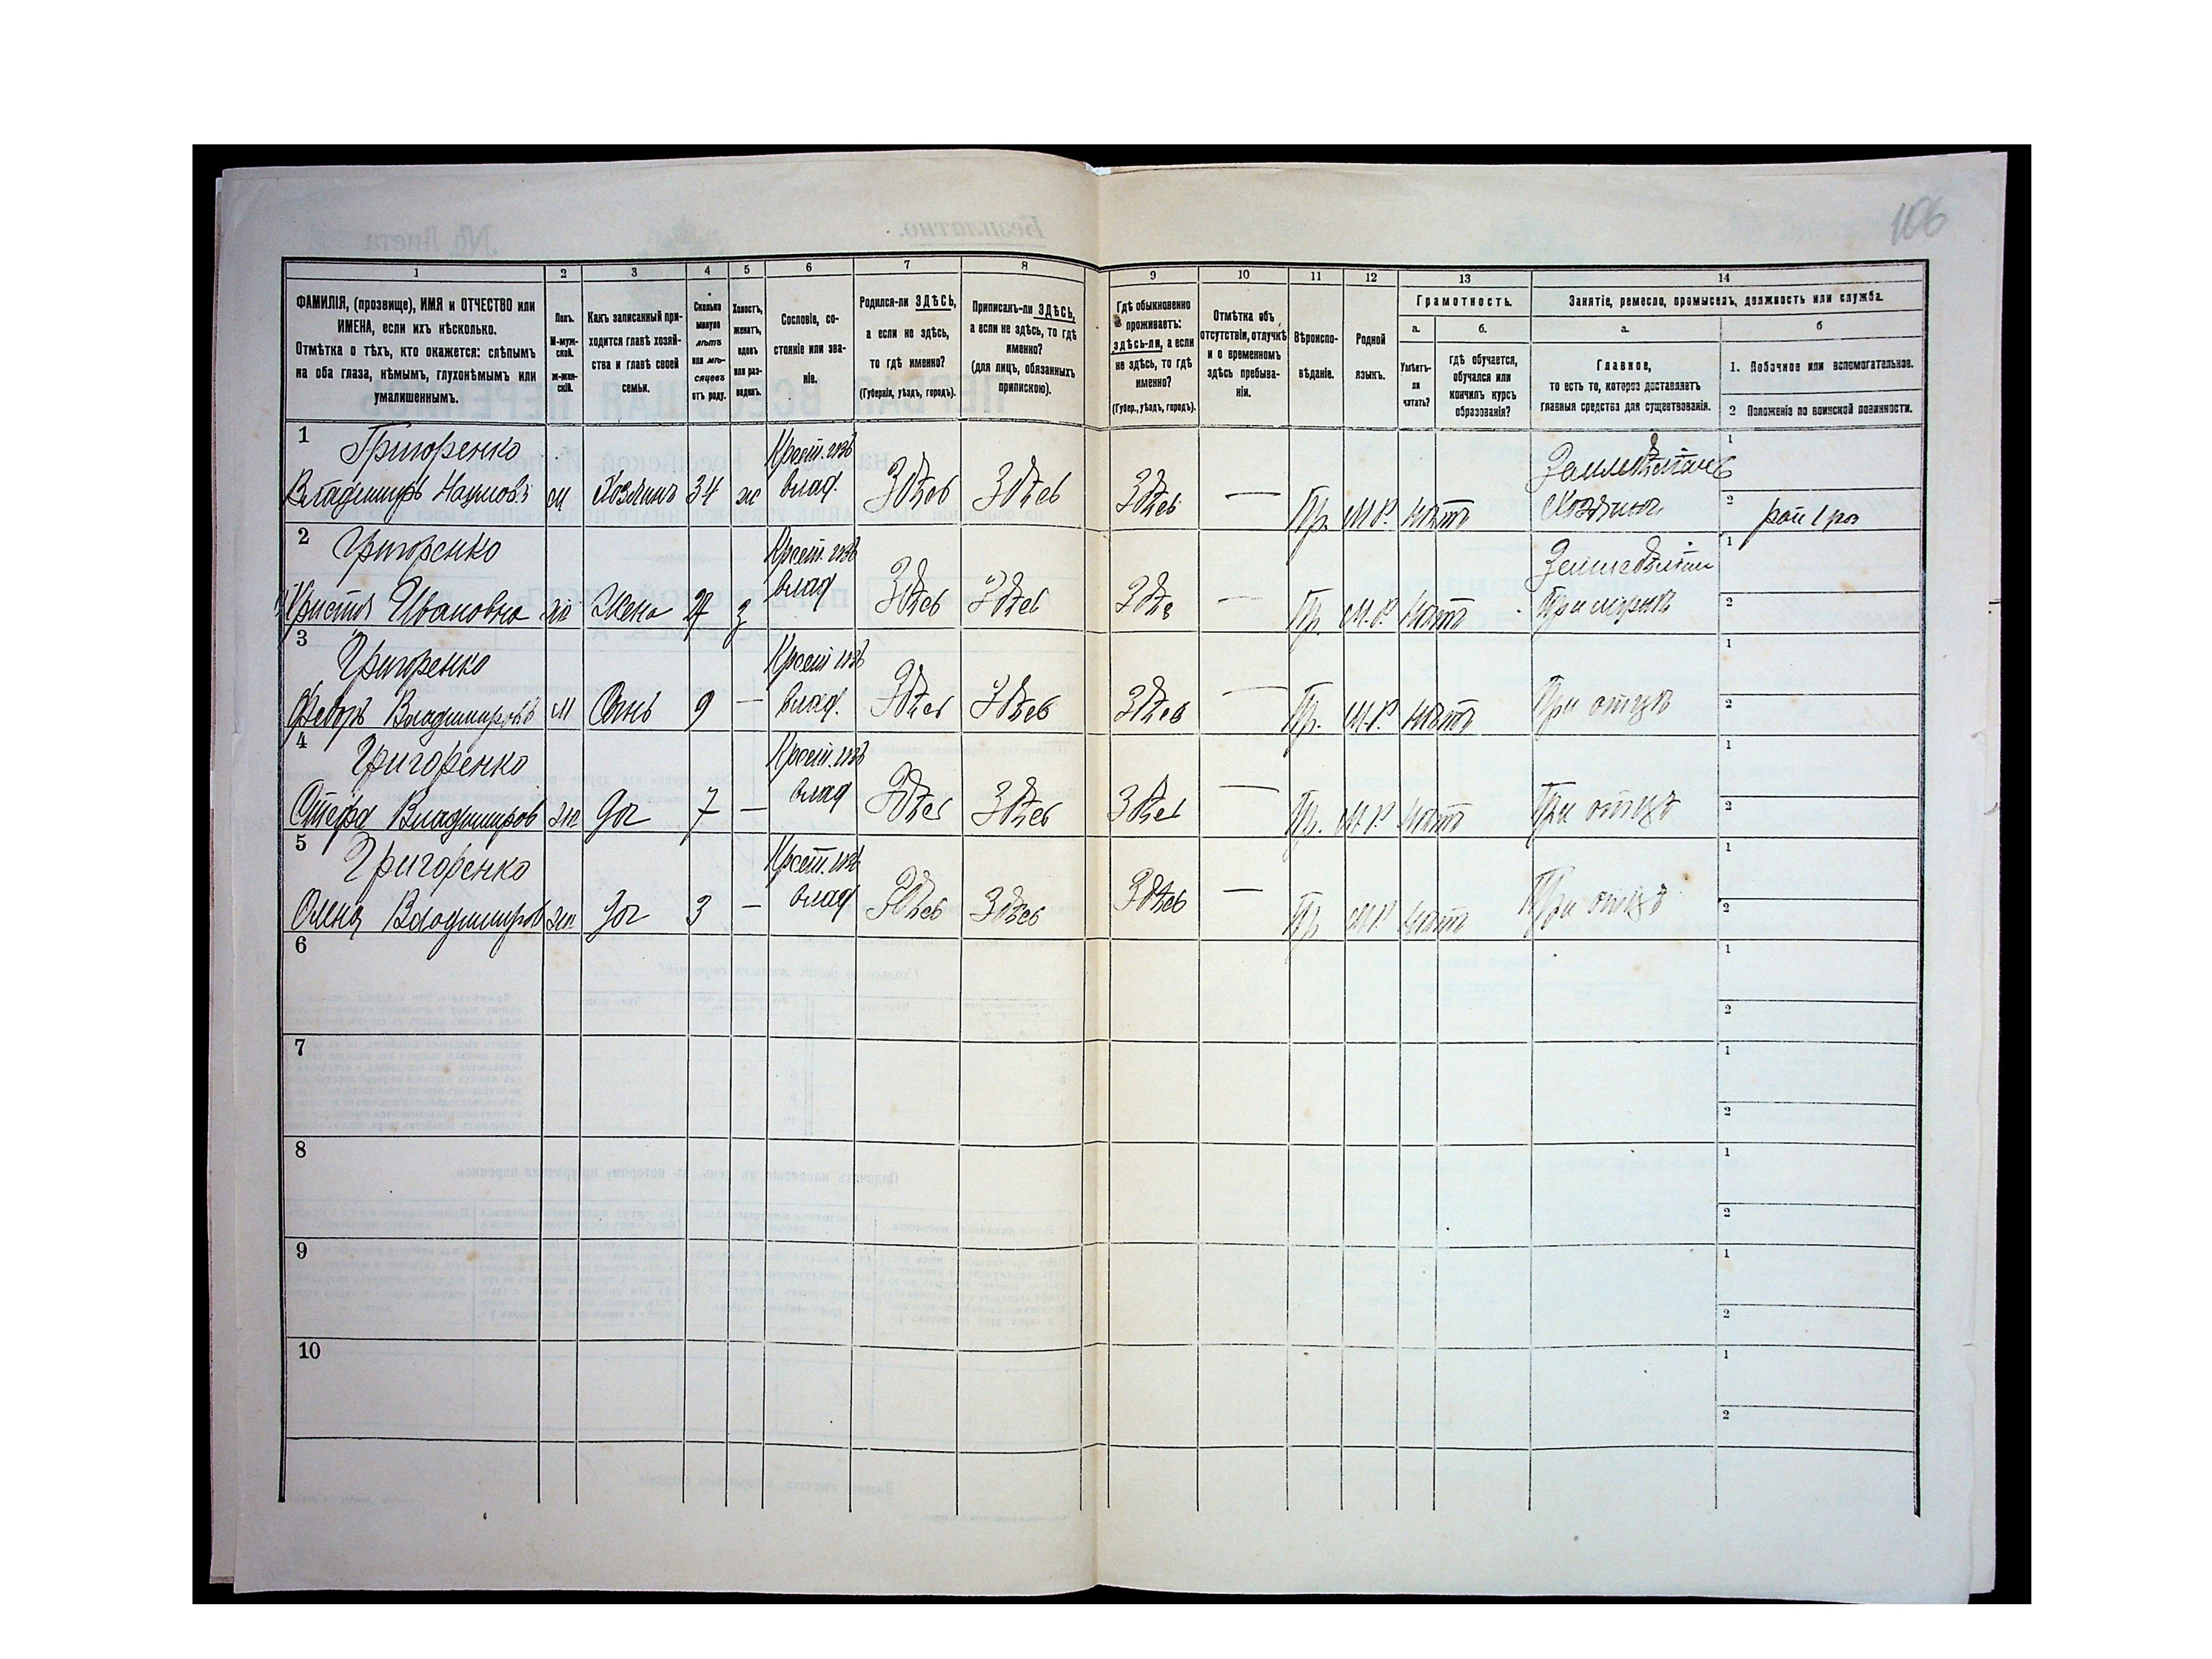 106
1 2 3 4 5 6 7 8 9 10 11 12 13 14
ФАМИЛІЯ, (прозвище), ИМЯ и ОТЧЕСТВО или ИМЕНА, если ихъ нѣсколько.
Отмѣтка о тѣхъ, кто окажется: слѣпымъ на оба глаза, нѣмымъ, глухонѣмымъ или умалишеннымъ.
Полъ.
М-муж-
ской.
Ж-жен-
скій.
Какъ записанный при-
ходится главѣ хозяй-
ства и главѣ своей
семьи.
Сколько
минуло
лѣтъ
или мѣ-
сяцевъ
отъ роду.
Холостъ,
женатъ,
вдовъ
или раз-
веденъ.
Сословіе, со-
стояніе или зва-
ніе.
Родился-ли ЗДѢСЬ,
а если не здѣсь,
то гдѣ именно?
(Губернія, уѣздъ, городъ).
Приписанъ-ли ЗДѢСЬ,
а если не здѣсь, то гдѣ
именно?
(для лицъ, обязанныхъ
припискою).
Гдѣ обыкновенно
проживаетъ:
здѣсь-ли, а если
не здѣсь, то гдѣ
именно?
(Губер., уѣздъ, городъ).
Отмѣтка объ
отсутствіи, отлучкѣ
и о временномъ
здѣсь пребыва-
ніи.
Вѣроиспо-
вѣданіе.
Родной
языкъ.
Грамотность.
а.
б.
Умѣетъ-
ли
читать?
гдѣ обучается,
обучался или
кончилъ курсъ
образованія?
Занятіе, ремесло, промыселъ, должность или служба.
а.
б
Главное,
то есть то, которое доставляетъ
главныя средства для существованія.
1. Побочное или вспомогательное.
2 Положеніе по воинской повинности.
1 Григоренко Крест. соб Земледѣлецъ 1
Владимиръ Наумовъ м Хозяинъ 34 ж влад. Здѣсь Здѣсь Здѣсь — Пр. М.Р. нѣтъ Хозяинъ 2
2 Григоренко Крест. соб Земледѣліе 1
Христя Ивановна ж Жена з влад Здѣсь Здѣсь — Пр. М.Р. нѣтъ При мужѣ 2
3 Григоренко Крест соб 1
Федоръ Владимировъ М Сынъ 9 — влад. Здѣсь Здѣсь Здѣсь — Пр. М.Р. нѣтъ При отцѣ 2
4 Григоренко Крест. соб 1
Владимиров ж доч 7 — влад Здѣсь Здѣсь Здѣсь — Пр. М.Р. нѣтъ При отцѣ 2
5 Григоренко Крест. соб 1
Олена Владимиров ж доч 3 — влад Здѣсь Здѣсь Здѣсь — Пр М.Р нѣтъ При отцѣ 2
6 1
2
7 1
2
8 1
2
9 1
2
10 1
2